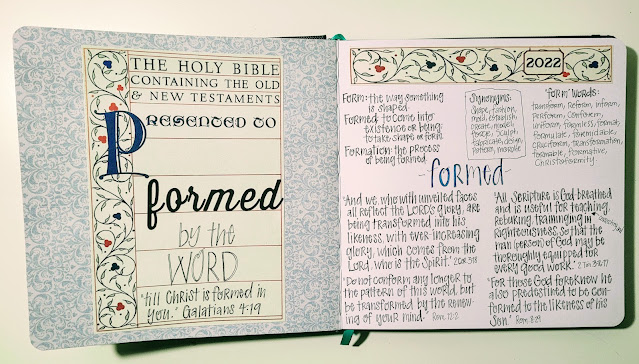 THE HOLY BIBLE
CONTAINING THE OLD
& NEW TESTAMENTS
PRESENTED TO
formed
by the
WORD
"till Christ is formed in
you." Galatians 4:19
2022
Form: the way something
is shaped.
Formed: to come into
existence or being;
to take shape or form.
Formation: the process
of being formed.
Synonyms:
Shape, fashion,
mold, establish,
create, model,
forge, sculpt,
fabricate, design,
pattern,
"form" words:
transform, reform, inform,
perform, conform,
uniform, formless, format,
formulate, formidable,
cruciform, transformation,
formable, formative,
Christoformity
-formed-
"And we, who with unveiled faces
all reflect the LORD's glory, are
being transformed into his
likeness, with ever-increasing
glory, which comes from the
Lord, who is the Spirit." 2 Cor. 3:18
"Do not conform any longer to
the pattern of this world, but
be transformed by the renew-
ing of your mind." Rom. 12:2
"All Scripture is God breathed
and is useful for teaching,
rebuking, training in
righteousness, so that the
man (person) of God may be
thoroughly equipped for
every good work." 2 Tim. 3:16-17
"For those God foreknew he
also predestined to be con-
formed to the likeness of his
Son." Rom. 8:29